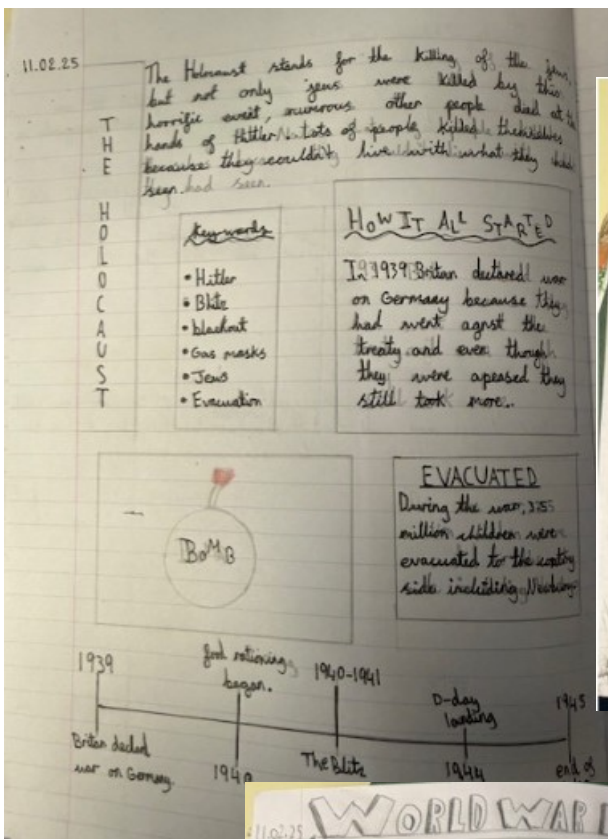 11.02.25
THE HOLOCAUST
The Holocaust stands for the killing of the jews,
but not only jews were killed by this
horrific event, numerous other people died at the
hands of Hittler. Lots of people killed
because they couldn't live with what they had
seen.
Key words
• Hitler
• Blitz
• blackout
• Gas masks
• Jews
• Evacuation
HOW IT ALL STARTED
In 1939 Britan declared war
on Germany because they
had went agnst the
treaty and even though
they were apeased they
still took more..
BOMB
EVACUATED
During the war,
million children were
evacuated to the
side including
1939
Britan decled
war on Germany.
food rationing
began.
1940
1940-1941
The Blitz
D-day
landing
1944
1945
end of
11.02.25
WORLD WAR